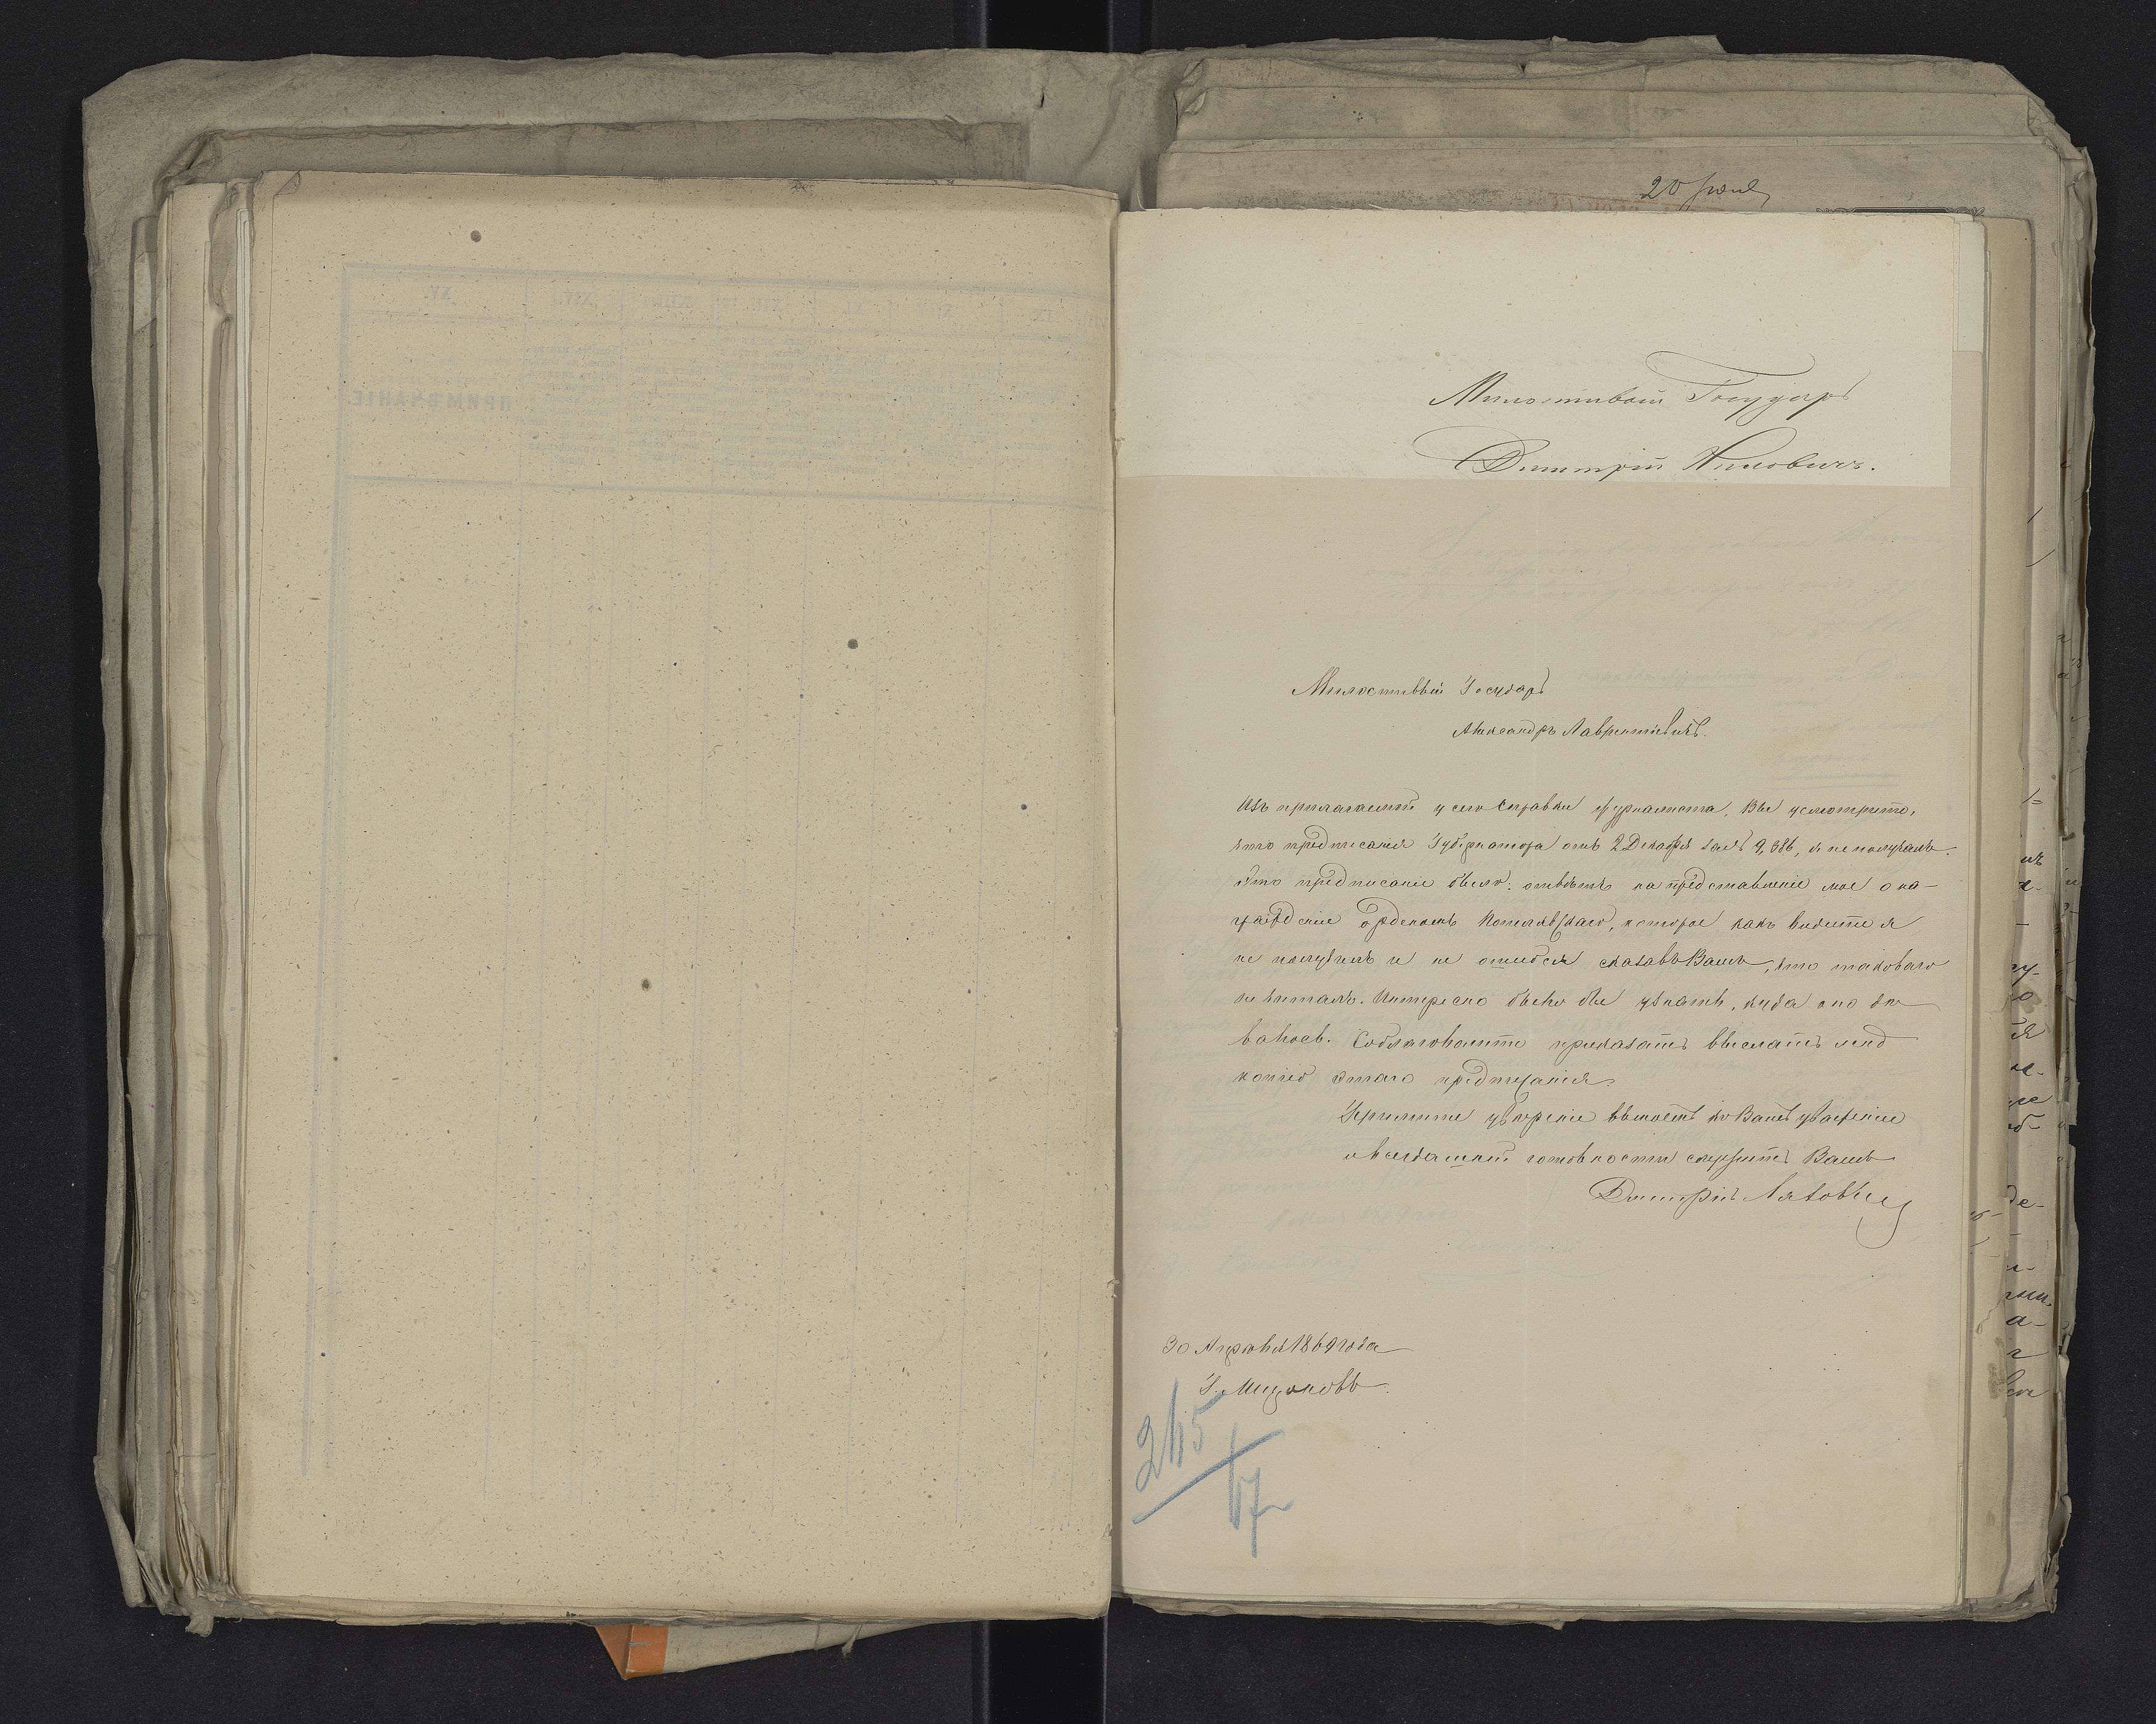 20 Июня
Милостивый Государь
Димитрій Ниловичъ.
Милостивый Государь
Александръ Лаврентьевичъ.
Изъ прилагаемой у сего справки журналиста, Вы усмотрите,
что предписанія Губернатора отъ 2 Декабря за № 9,386, я не получалъ.
Это предписаніе было: отвѣтъ на представленіе мое о на-
гражденіе орденомъ Котляевскаго, которое какъ видите я
не получилъ и не ошибся сказавъ Вамъ, что таковаго
не читалъ. Интересно было бы узнать, куда оно дѣ
валось. Соблаговолите приказать выслать мнѣ
копію этаго предписанія.
Примите увѣреніе въ моемъ къ Вамъ уваженіе
и всегдашней готовности служить Вамъ
Дмитрій
30 Апрѣля 1869 года
Г.
245
67
XV.
XIV.
XIII.
XII.
ПРИМѢЧАНІЕ.